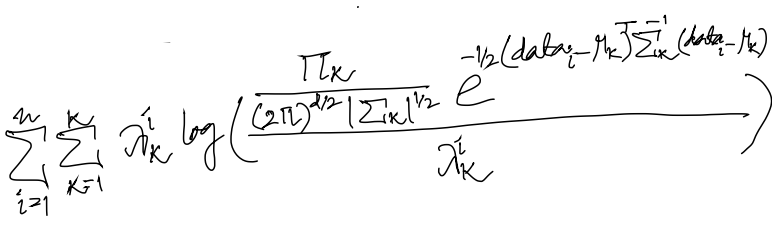 $\sum_{i=1}^{n} \sum_{k=1}^{K} \lambda_k^i \log\left(\frac{\frac{\pi_k}{(2\pi)^{d/2} |\Sigma_k|^{1/2}} e^{-1/2 (data_i - \mu_k)^T \Sigma_k^{-1} (data_i - \mu_k)}}{\lambda_k^i}\right)$